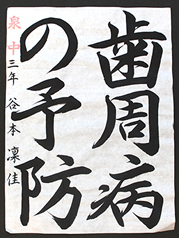 歯周病
の予防
泉中三年 谷本凜佳